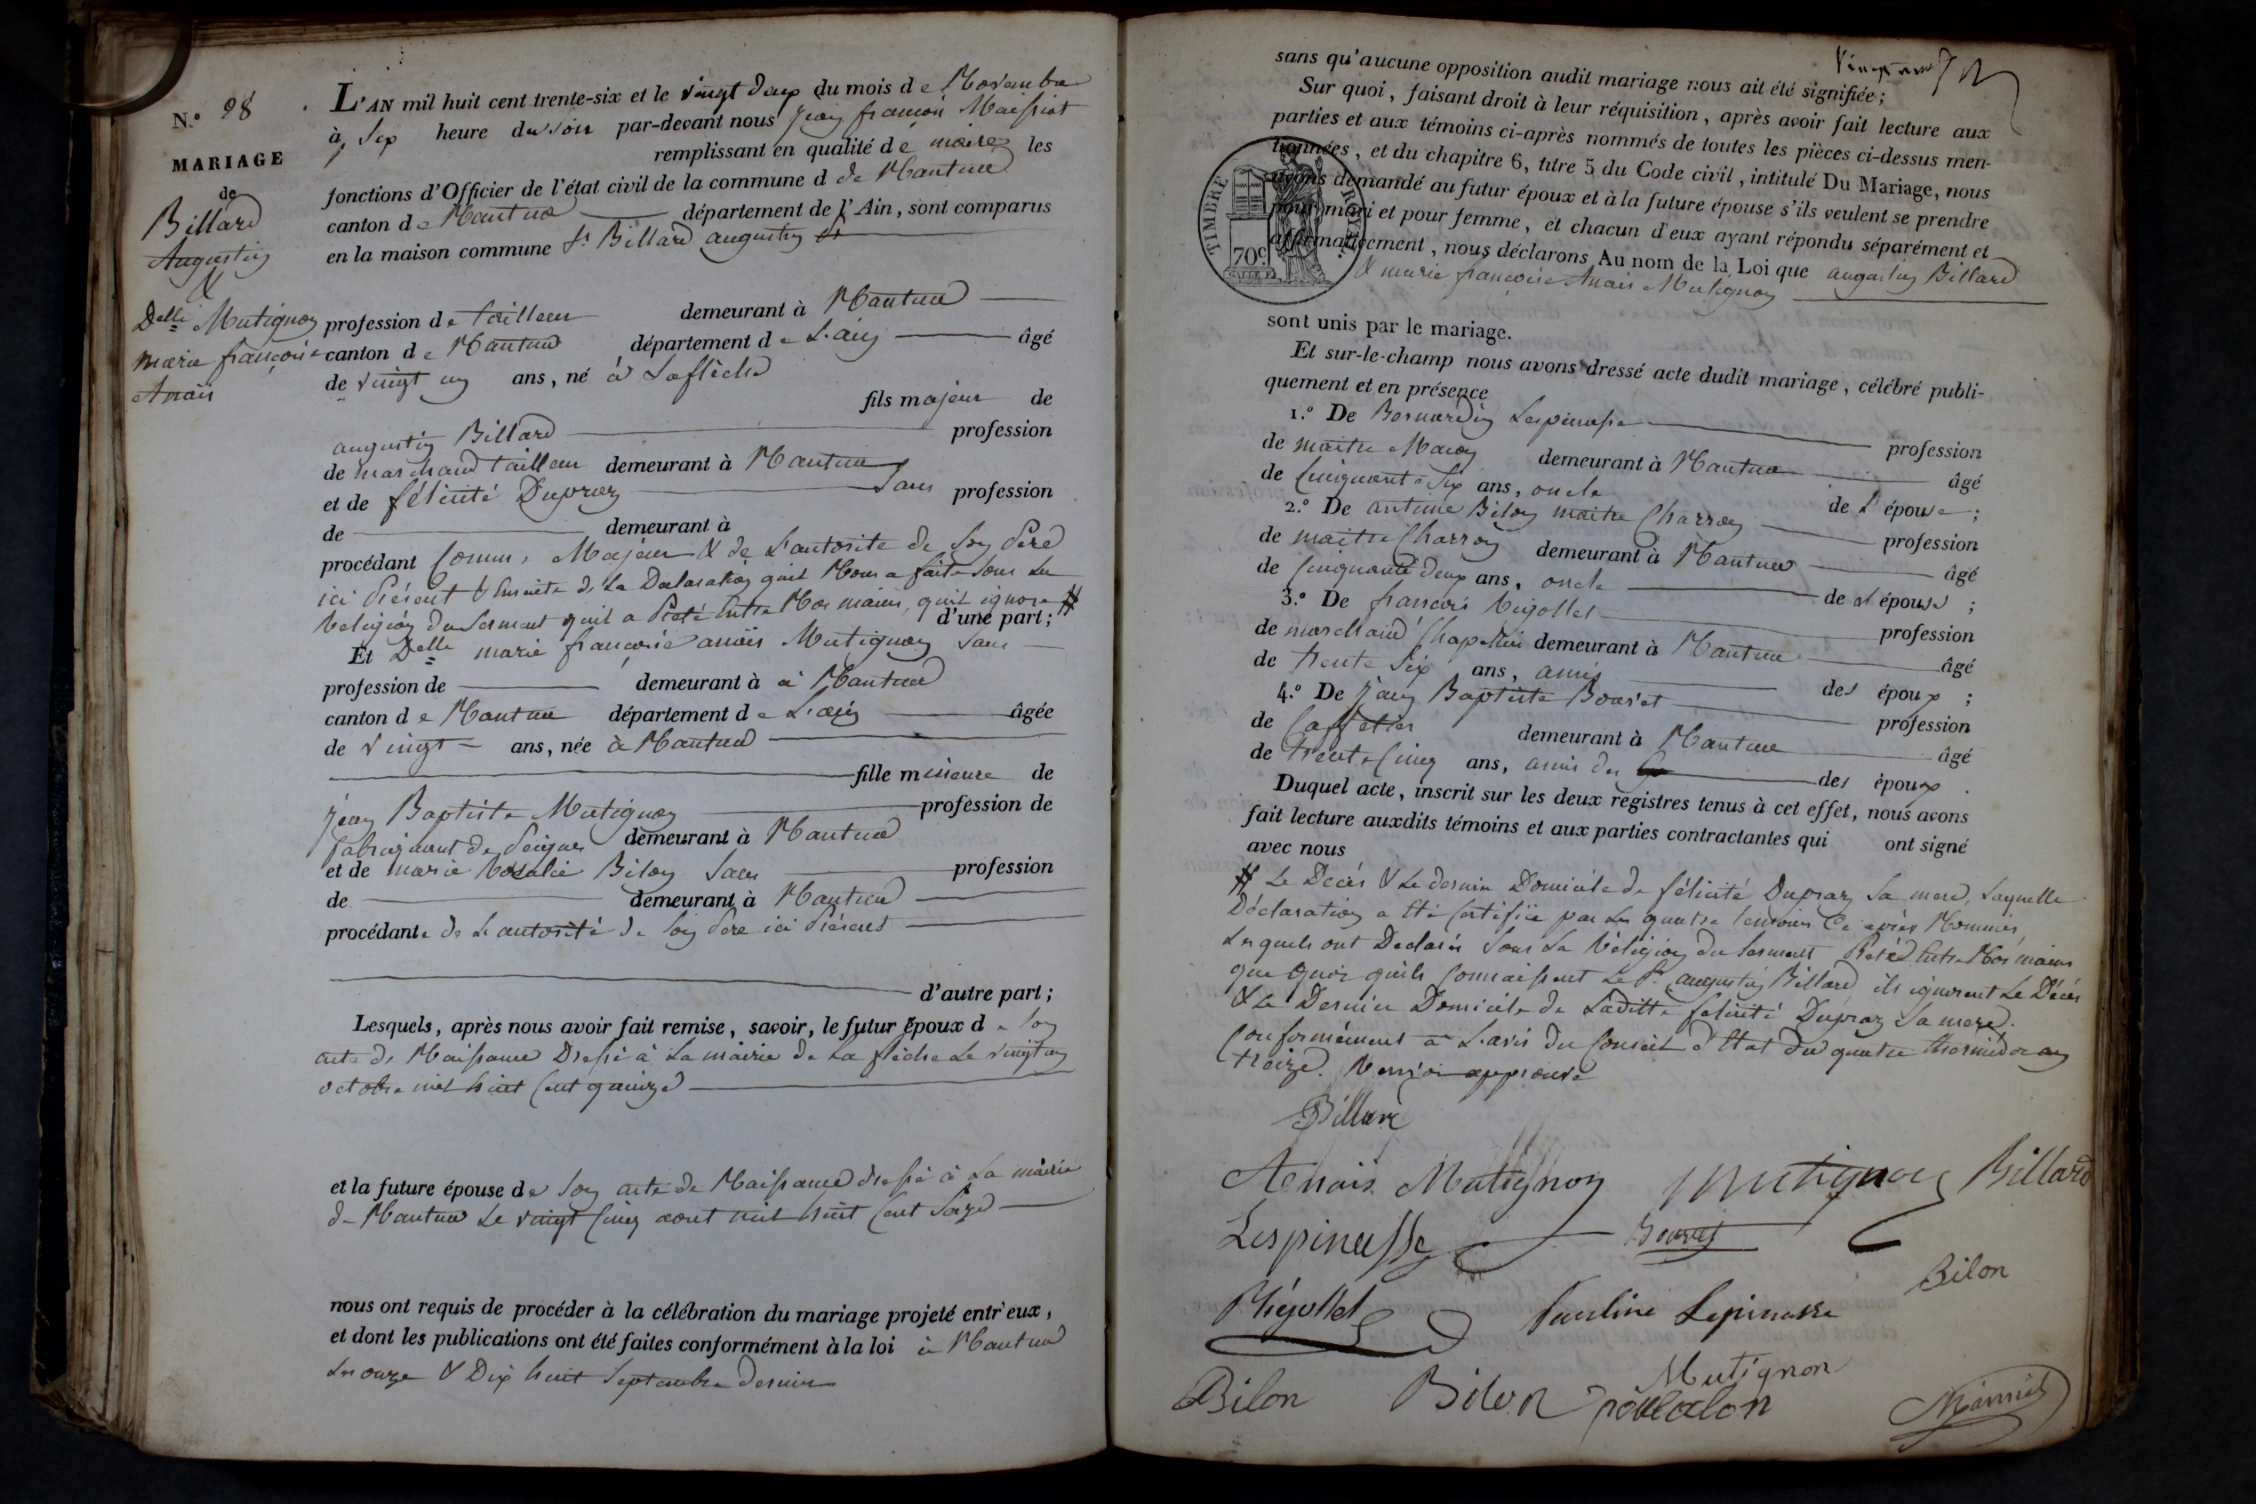 N.º 28
MARIAGE
de
Billard
Augustin
&
Delle Mutignon
marie françoise
Anaïs
L'AN mil huit cent trente-six et le vingt deux du mois de Novembre
à six heure du soir par-devant nous jean françois Maissiat
remplissant en qualité de maire les
fonctions d'Officier de l'état civil de la commune d de Nantua
canton de Nantua département de l'Ain, sont comparus
en la maison commune Sr Billard augustin
profession de tailleur demeurant à Nantua
canton de Nantua département de L'ain âgé
de vingt un ans, né à Laflèche
fils majeur de
augustin Billard profession
de marchand tailleur demeurant à Nantua
et de félicité Dupraz Sans profession
de demeurant à
procédant Comme Majeur & de L'autorité de Son Père
ici Présent & Ensuite de La Déclaration qu'il Nous a faite Sous La
Religion du Serment qu'il a Prété Entre Nos mains, qu'il ignore #
d'une part;
Et Delle marie françoise anaïs Mutignon Sans
profession de demeurant à à Nantua
canton de Nantua département de L'ain âgée
de vingt ans, née à Nantua
fille mineure de
jean Baptiste Mutignon profession de
fabriquant de Peignes demeurant à Nantua
et de marie Rosalie Bilon Sans profession
de demeurant à Nantua
procédante de L'autorité de Son Père ici Présent
d'autre part;
Lesquels, après nous avoir fait remise, savoir, le futur Époux de Son
acte de Naissance Dressé à La mairie de La flèche Le vingt un
octobre mil huit Cent quinze
et la future épouse de Son acte de Naissance dressé à La mairie
de Nantua Le vingt Cinq aout mil huit Cent Seize
nous ont requis de procéder à la célébration du mariage projeté entr'eux,
et dont les publications ont été faites conformément à la loi à Nantua
Les onze & Dix huit Septembre dernier
sans qu'aucune opposition audit mariage nous ait été signifiée;
Sur quoi, faisant droit à leur réquisition, après avoir fait lecture aux
parties et aux témoins ci-après nommés de toutes les pièces ci-dessus men-
tionnées, et du chapitre 6, titre 5 du Code civil, intitulé Du Mariage, nous
avons demandé au futur époux et à la future épouse s'ils veulent se prendre
pour mari et pour femme, et chacun d'eux ayant répondu séparément et
affirmativement, nous déclarons Au nom de la Loi que augustin Billard
& marie françoise Anaïs Mutignon
TIMBRE ROYAL.
70c.
sont unis par le mariage.
Et sur-le-champ nous avons dressé acte dudit mariage, célébré publi-
quement et en présence
1.º De Bernardin Lespinasse profession
de maitre Maçon demeurant à Nantua âgé
de Cinquante Six ans, oncle de L'épouse;
2.º De antoine Bilon maitre Charron profession
de maitre Charron demeurant à Nantua âgé
de Cinquante deux ans, oncle de L'épouse;
3.º De françois Vegollet profession
de marchand Chapellier demeurant à Nantua âgé
de trente Six ans, amis des époux;
4.º De jean Baptiste Bouvet profession
de Caffetier demeurant à Nantua âgé
de trente Cinq ans, amis des des époux.
Duquel acte, inscrit sur les deux registres tenus à cet effet, nous avons
fait lecture auxdits témoins et aux parties contractantes qui ont signé
avec nous
# Le Décès & Le dernier Domicile de félicité Dupraz Sa mere, Laquelle
Déclaration a été Certifiée par Les quatre temoins Ci après Nommés,
Lesquels ont Déclarés Sous La Réligion du Serment Prété Entre Nos mains
que quoi qu'ils Connaissent Le Sr augustin Billard ils ignorent Le Décès
& Le Dernier Domicile de Laditte felicité Dupraz Sa mere.
Conformément à L'avis du Conseil d'Etat du quatre thermidor an
treize. Renvoi approuvé
Billard
Anaïs Mutignon Mutignon Billard
Lespinasse Bouvet
Bilon
Pauline Lepinasse
Mutignon
Bilon Bilon